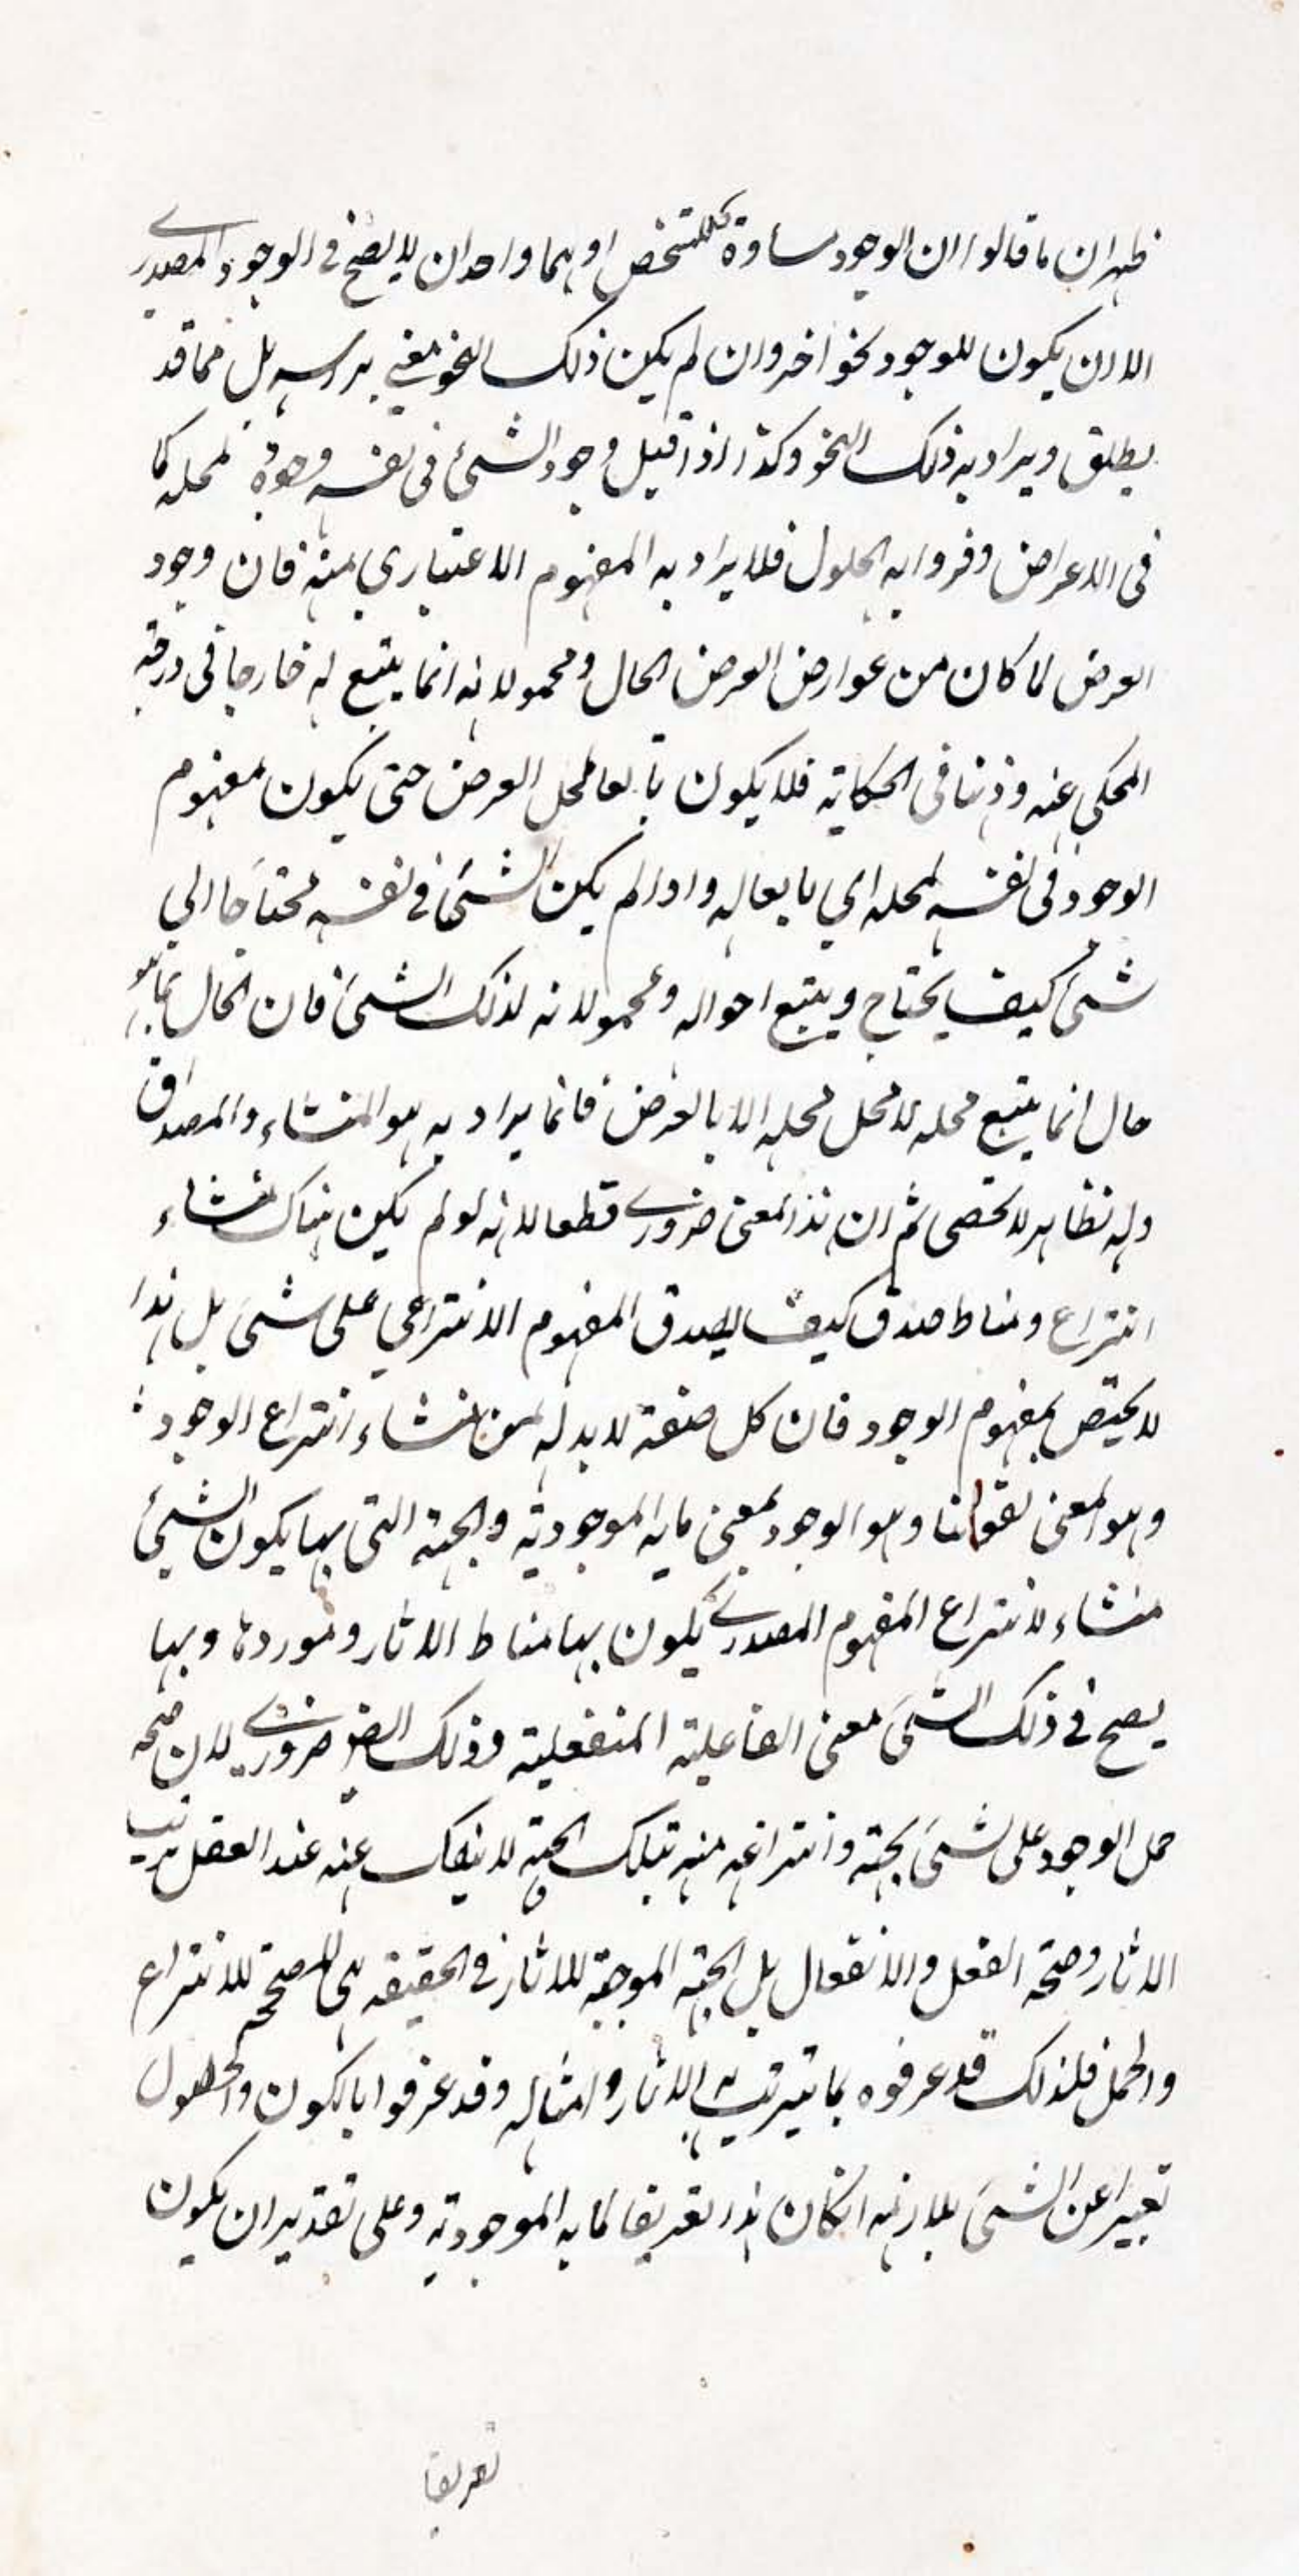 ظهر ان ما قالوا ان الوجود مساوق للتشخص او هما واحدان لا يصح فى الوجود المصدرى
الا ان يكون للوجود نحو اخر وان لم يكن ذلك النحو معنى براسه بل مما قد
يطلق ويراد به ذلك النحو وكذا اذا قيل وجود الشئ فى نفسه وجوده لمحله كما
فى الاعراض وفروا به الحلول فلا يراد به المفهوم الاعتبارى بمنه فان وجود
العرض لما كان من عوارض العرض الحال ومحمولاته انما يتبع له خارجا فى درجة
المحكى عنه وذهنا فى الحكاية فلا يكون تابعا لمحل العرض حتى يكون مفهوم
الوجود فى نفسه لمحله اى تابعا له واذا لم يكن الشئ فى نفسه محتاجا الى
شئ كيف يحتاج ويتبع احواله ومحمولاته لذلك الشئ فان الحال بما هو
حال انما يتبع محله لا محل محله الا بالعرض فانما يراد به هو المنشاء والمصداق
وله نظاير لا تحصى ثم ان هذا المعنى ضرورى قطعا لانه لو لم يكن هناك منشاء
انتزاع ومناط صدق كيف يصدق المفهوم الانتزاعى على شئ بل هذا
لا يختص بمفهوم الوجود فان كل صفة لا بد له من منشاء انتزاع الوجود
وهو المعنى بقولنا وهو الوجود بمعنى ما به الموجودية والجهة التى بها يكون الشئ
منشاء لانتزاع المفهوم المصدرى يكون بها مناط الاثار وموردها وبها
يصح فى ذلك الشئ معنى الفاعلية المنفعلية وذلك ايضا ضرورى لان صحة
حمل الوجود على شئ بجهة وانتزاعه منه بتلك الجهة لا ينفك عنه عند العقل ترتيب
الاثار وصحة الفعل والانفعال بل الجهة الموجبة للاثار فى الحقيقه هى المصححة للانتزاع
والحمل فلذلك قد عرفوه بما يترتب به الاثار وامثاله وقد عرفوا بالكون والحصول
تعبيرا عن الشئ بلازمه انكان هذا تعريفا لما به الموجودية وعلى تقدير ان يكون
تعريفا